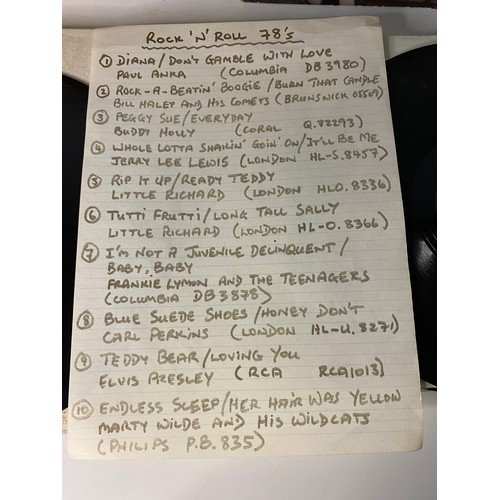 ROCK 'N' ROLL 78's
① DIANA/DON'T GAMBLE WITH LOVE
PAUL ANKA (COLUMBIA DB3980)
② ROCK-A-BEATIN' BOOGIE/BURN THAT CANDLE
BILL HALEY AND HIS COMETS (BRUNSWICK 05509)
③ PEGGY SUE/EVERYDAY
BUDDY HOLLY (CORAL Q.72293)
④ WHOLE LOTTA SHAKIN' GOIN' ON/IT'LL BE ME
JERRY LEE LEWIS (LONDON HL-S.8457)
⑤ RIP IT UP/READY TEDDY
LITTLE RICHARD (LONDON HLO.8336)
⑥ TUTTI FRUTTI/LONG TALL SALLY
LITTLE RICHARD (LONDON HL-O.8366)
⑦ I'M NOT A JUVENILE DELINQUENT/
BABY, BABY
FRANKIE LYMON AND THE TEENAGERS
(COLUMBIA DB3878)
⑧ BLUE SUEDE SHOES/HONEY DON'T
CARL PERKINS (LONDON HL-U.8271)
⑨ TEDDY BEAR/LOVING YOU
ELVIS PRESLEY (RCA RCA1013)
⑩ ENDLESS SLEEP/HER HAIR WAS YELLOW
MARTY WILDE AND HIS WILDCATS
(PHILIPS P.B.835)